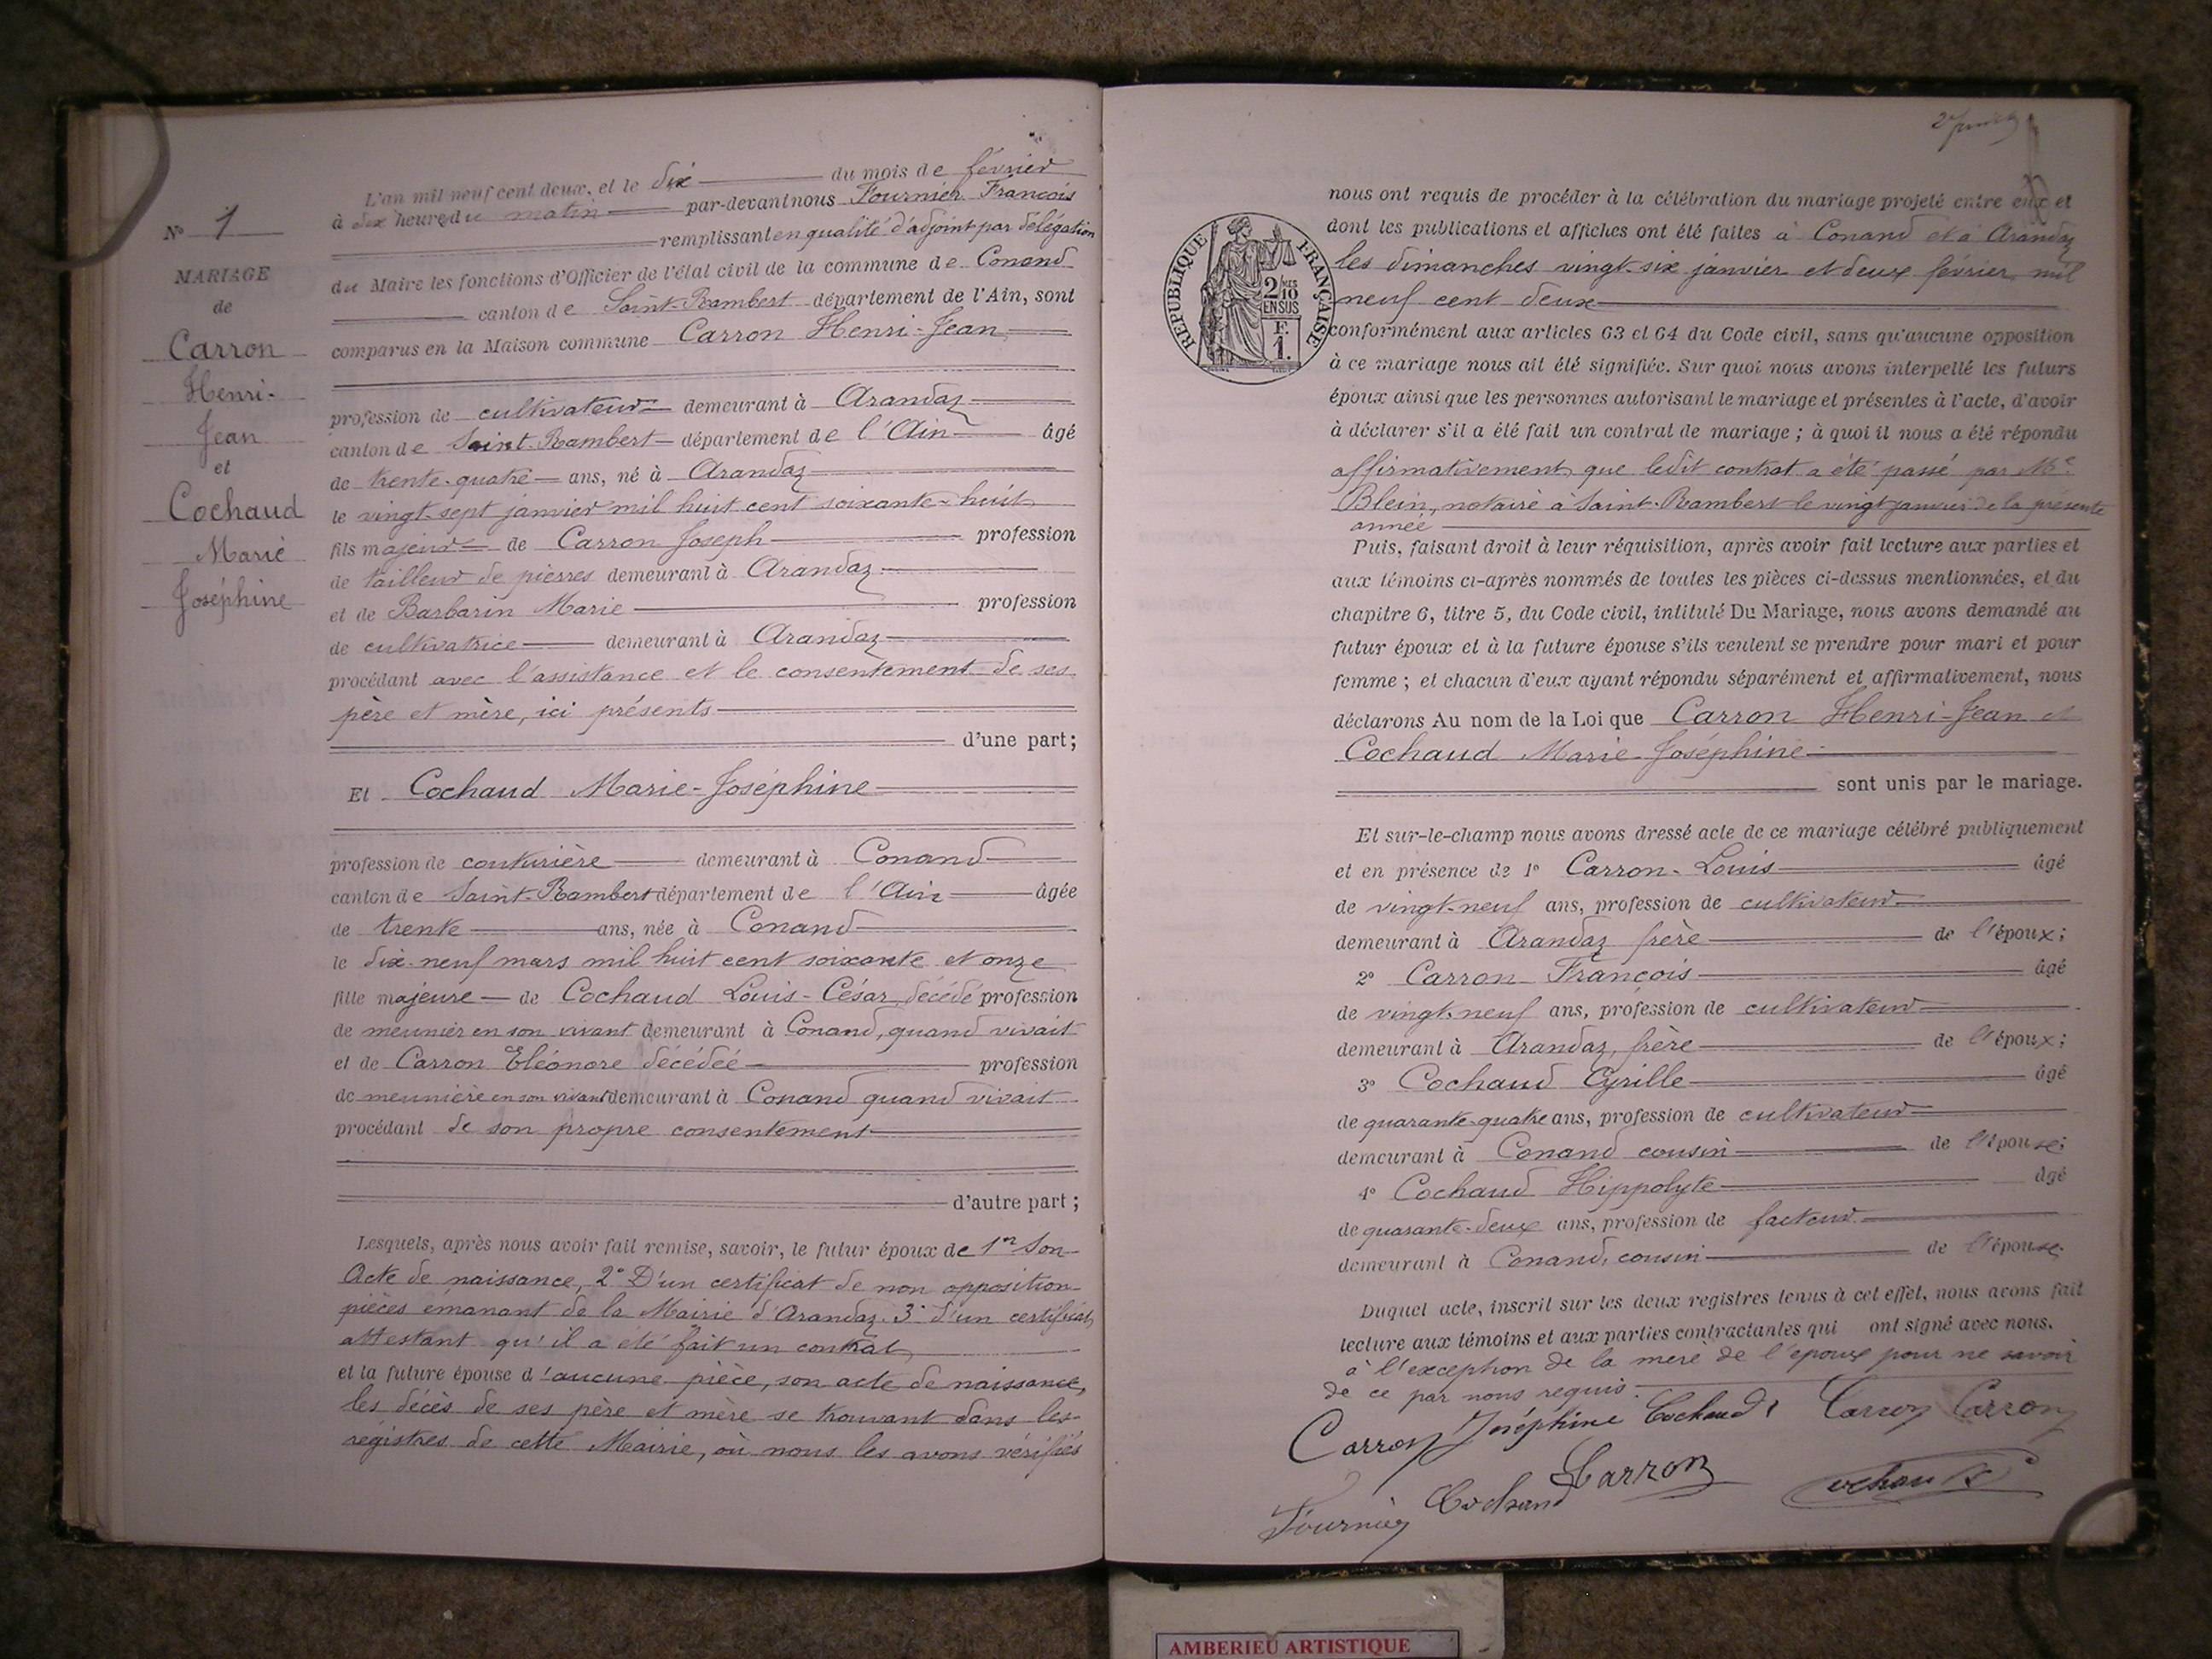 N° 1
MARIAGE
de
Carron
Henri-
Jean
et
Cochaud
Marie
Joséphine
L'an mil neuf cent deux, et le dix du mois de février
à dix heures du matin par-devant nous Fournier François
remplissant en qualité d'adjoint par délégation
du Maire les fonctions d'Officier de l'état civil de la commune de Conand
canton de Saint-Rambert département de l'Ain, sont
comparus en la Maison commune Carron Henri-Jean
profession de cultivateur demeurant à Arandaz
canton de Saint-Rambert département de l'Ain âgé
de trente-quatre ans, né à Arandaz
le vingt-sept janvier mil huit cent soixante-huit
fils majeur de Carron Joseph profession
de tailleur de pierres demeurant à Arandaz
et de Barbarin Marie profession
de cultivatrice demeurant à Arandaz
procédant avec l'assistance et le consentement de ses
père et mère, ici présents
d'une part;
Et Cochaud Marie-Joséphine
profession de couturière demeurant à Conand
canton de Saint-Rambert département de l'Ain âgée
de trente ans, née à Conand
le dix-neuf mars mil huit cent soixante et onze
fille majeure de Cochaud Louis-César, décédé profession
de meunier en son vivant demeurant à Conand, quand vivait
et de Carron Eléonore décédée profession
de meunière en son vivant demeurant à Conand quand vivait
procédant de son propre consentement
d'autre part;
Lesquels, après nous avoir fait remise, savoir, le futur époux de 1° Son
Acte de naissance, 2° D'un certificat de non opposition
pièces émanant de la Mairie d'Arandaz. 3° d'un certificat
attestant qu'il a été fait un contrat
et la future épouse d'aucune pièce, son acte de naissance,
les décès de ses père et mère se trouvant dans les
registres de cette Mairie, où nous les avons vérifiés
RÉPUBLIQUE FRANÇAISE
2/10 MES
EN SUS
F.
1.
nous ont requis de procéder à la célébration du mariage projeté entre eux et
dont les publications et affiches ont été faites à Conand et à Arandaz
les dimanches vingt-six janvier et deux février mil
neuf cent deux
conformément aux articles 63 et 64 du Code civil, sans qu'aucune opposition
à ce mariage nous ait été signifiée. Sur quoi nous avons interpellé les futurs
époux ainsi que les personnes autorisant le mariage et présentes à l'acte, d'avoir
à déclarer s'il a été fait un contrat de mariage; à quoi il nous a été répondu
affirmativement, que ledit contrat a été passé par Me
Blein, notaire à Saint-Rambert le vingt janvier de la présente
année
Puis, faisant droit à leur réquisition, après avoir fait lecture aux parties et
aux témoins ci-après nommés de toutes les pièces ci-dessus mentionnées, et du
chapitre 6, titre 5, du Code civil, intitulé Du Mariage, nous avons demandé au
futur époux et à la future épouse s'ils veulent se prendre pour mari et pour
femme; et chacun d'eux ayant répondu séparément et affirmativement, nous
déclarons Au nom de la Loi que Carron Henri-Jean et
Cochaud Marie-Joséphine
sont unis par le mariage.
Et sur-le-champ nous avons dressé acte de ce mariage célébré publiquement
et en présence de 1° Carron Louis âgé
de vingt-neuf ans, profession de cultivateur
demeurant à Arandaz frère de l'époux;
2° Carron François âgé
de vingt-neuf ans, profession de cultivateur
demeurant à Arandaz, frère de l'époux;
3° Cochaud Cyrille âgé
de quarante-quatre ans, profession de cultivateur
demeurant à Conand cousin de l'épouse;
4° Cochaud Hippolyte âgé
de quarante-deux ans, profession de facteur
demeurant à Conand, cousin de l'épouse.
Duquel acte, inscrit sur les deux registres tenus à cet effet, nous avons fait
lecture aux témoins et aux parties contractantes qui ont signé avec nous.
à l'exception de la mère de l'époux pour ne savoir
de ce par nous requis.
Carron Joséphine Cochaud Carron Carron
Carron
Fournier Cochaud Cochaud
AMBERIEU ARTISTIQUE